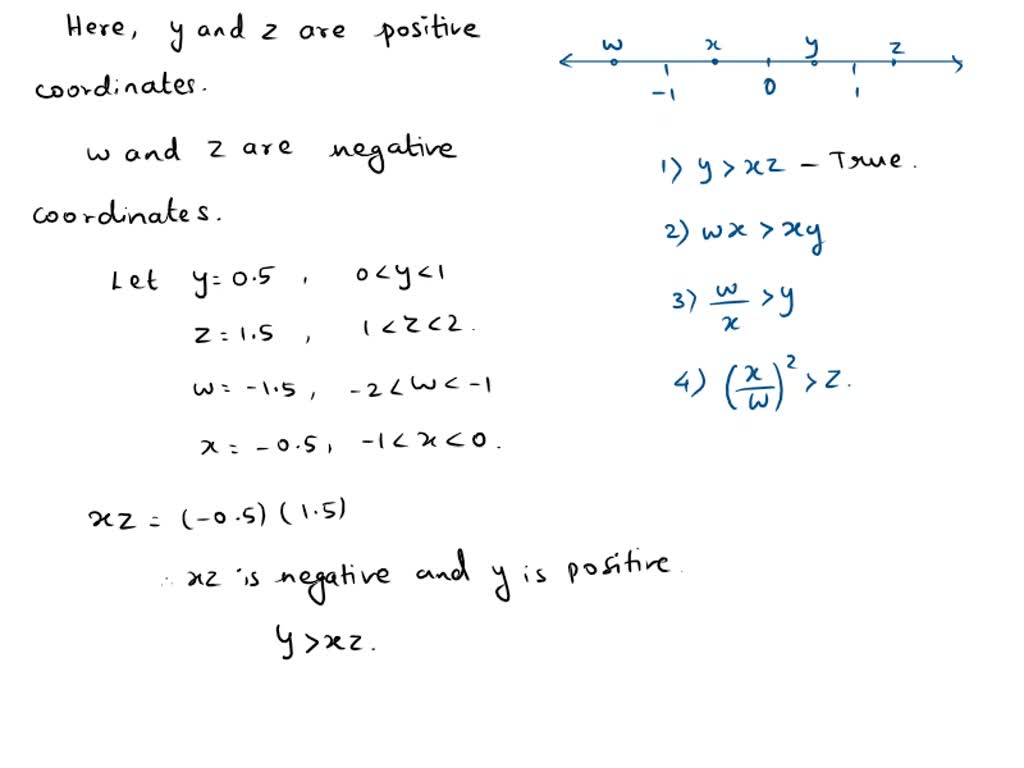 Here, y and z are positive
coordinates.
w and z are negative
coordinates.
Let y = 0.5 , 0 < y < 1
z = 1.5 , 1 < z < 2.
w = -1.5 , -2 < w < -1
x = -0.5 , -1 < x < 0.
xz = (-0.5) (1.5)
∴ xz is negative and y is positive.
y > xz.
w x y z
-1 0 1
1) y > xz - True.
2) wx > xy
3) w/x > y
4) (x/w)² > z.